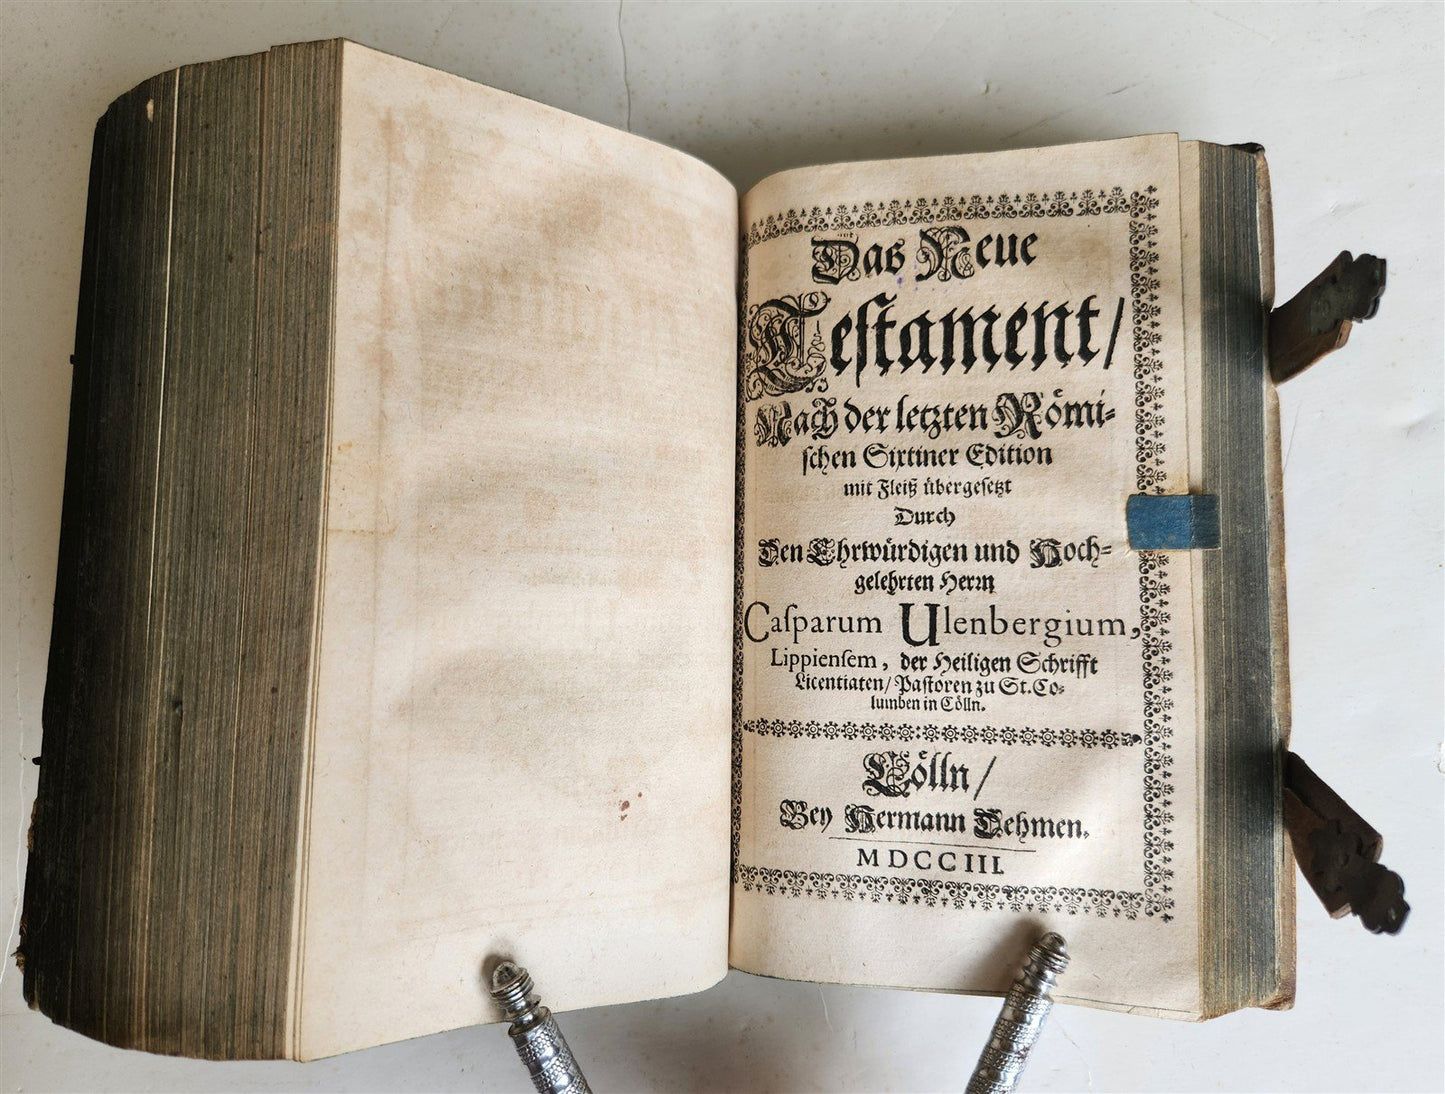 Das Neue
Teſtament/
Nach der letzten Römi-
ſchen Sixtiner Edition
mit Fleiß übergeſetzt
Durch
Den Ehrwürdigen und Hoch-
gelehrten Herrn
Caſparum Ulenbergium,
Lippienſem, der Heiligen Schrifft
Licentiaten/ Paſtoren zu St. Co-
lumben in Cölln.
Cölln/
Bey Hermann Dehmen.
MDCCIII.